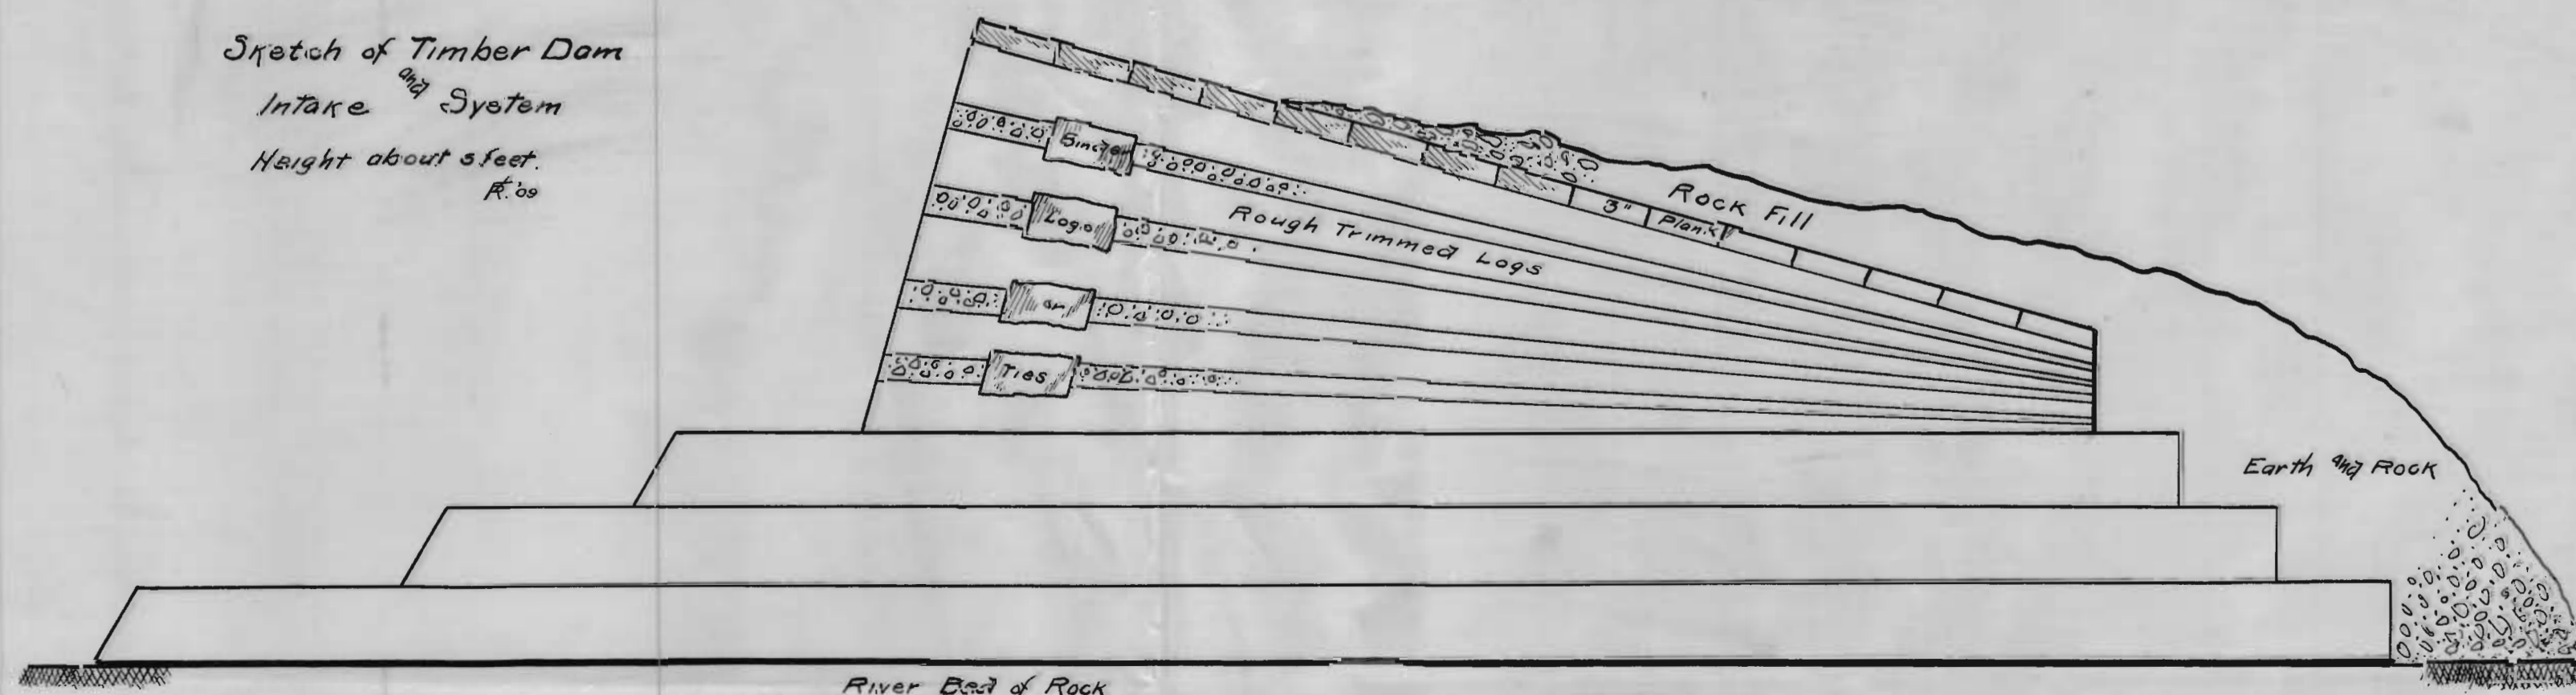 Sketch of Timber Dam
and
Intake System
Height about 5 feet.
R. '09
Binder
Logs
or
Ties
Rough Trimmed Logs
3" Plank
Rock Fill
Earth and Rock
River Bed of Rock